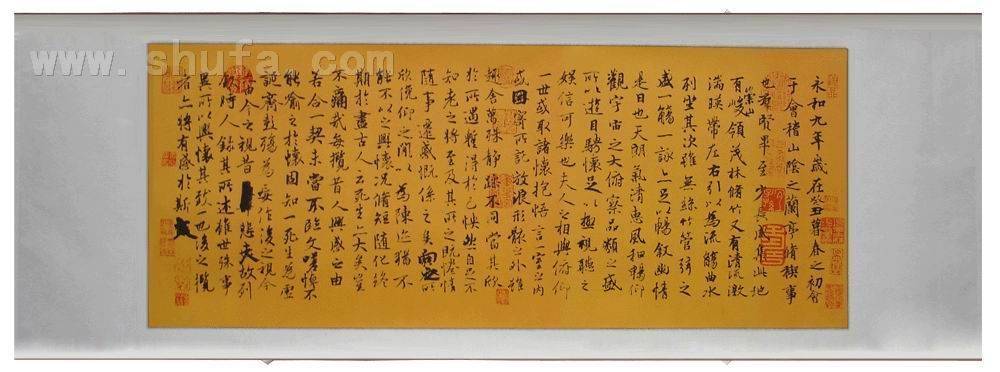 永和九年歲在癸丑暮春之初會
于會稽山陰之蘭亭脩稧事
也羣賢畢至少長咸集此地
有崇山峻領茂林脩竹又有清流激
湍暎帶左右引以為流觴曲水
列坐其次雖無絲竹管弦之
盛一觴一詠亦足以暢敘幽情
是日也天朗氣清惠風和暢仰
觀宇宙之大俯察品類之盛
所以遊目騁懷足以極視聽之
娛信可樂也夫人之相與俯仰
一世或取諸懷抱悟言一室之內
或因寄所託放浪形骸之外雖
趣舍萬殊靜躁不同當其欣
於所遇暫得於己怏然自足不
知老之將至及其所之既惓情
隨事遷感慨係之矣向之所
欣俛仰之閒以為陳迹猶不
能不以之興懷況脩短隨化終
期於盡古人云死生亦大矣豈
不痛哉每攬昔人興感之由
若合一契未嘗不臨文嗟悼不
能喻之於懷固知一死生為虛
誕齊彭殤為妄作後之視今
亦由今之視昔悲夫故列
敘時人錄其所述雖世殊事
異所以興懷其致一也後之攬
者亦將有感於斯文
www.shufa.com